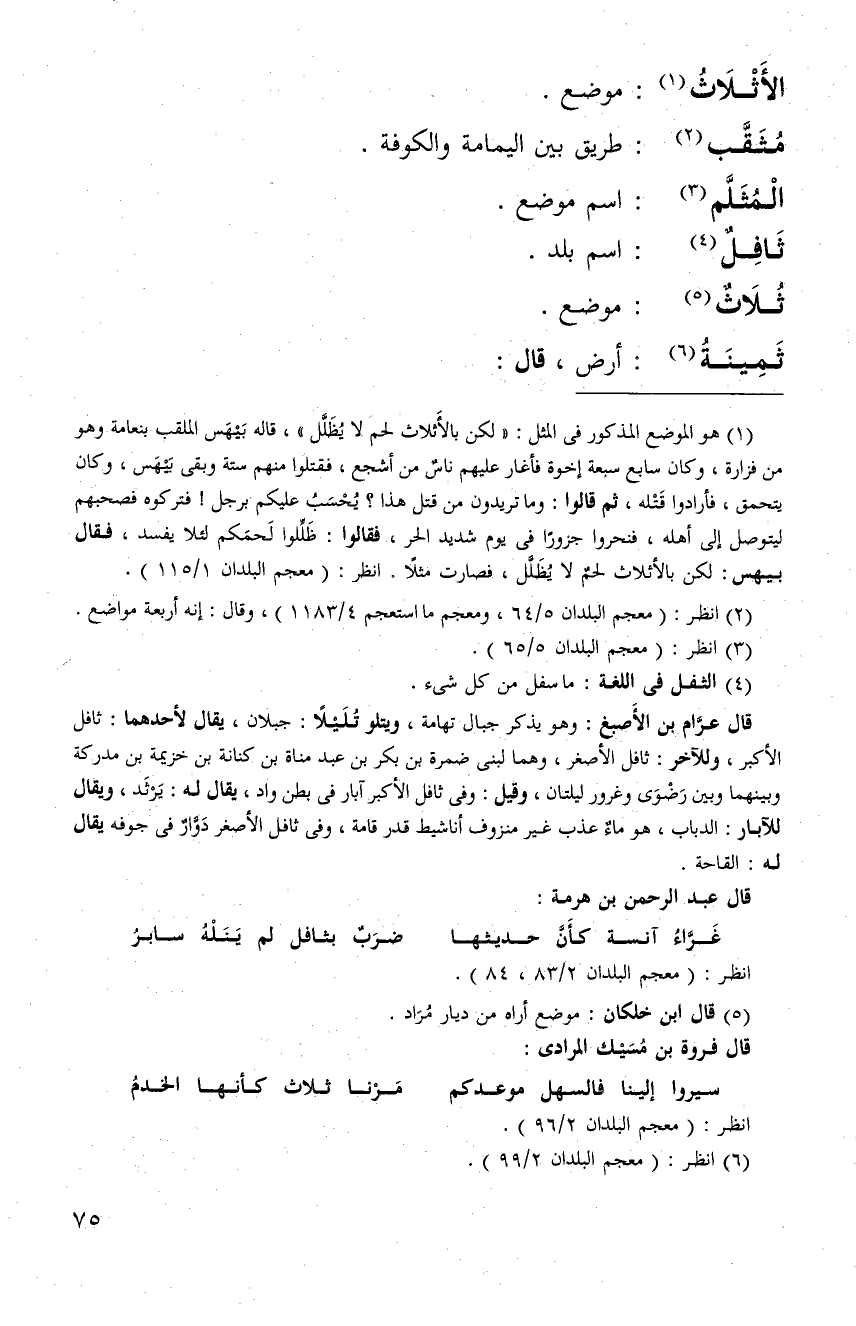 الأَثْـلَاثُ (١) : موضع .
مُثَقَّـب (٢) : طريق بين اليمامة والكوفة .
الْـمُثَلَّم (٣) : اسم موضع .
ثَـافِـلٌ (٤) : اسم بلد .
ثُـلَاثٌ (٥) : موضع .
ثَـمِينَـةُ (٦) : أرض ، قال :
(١) هو الموضع المذكور فى المثل : « لكن بالأَثلاث لحم لا يُظَلَّل » ، قاله بَيْهَس الملقب بنعامة وهو
من فزارة ، وكان سابع سبعة إخوة فأغار عليهم ناسٌ من أشجع ، فقتلوا منهم ستة وبقى بَيْهَس ، وكان
يتحمق ، فأرادوا قَتْله ، ثم قالوا : وما تريدون من قتل هذا ؟ يُحْسَبُ عليكم برجل ! فتركوه فصحبهم
ليتوصل إلى أهله ، فنحروا جزورًا فى يوم شديد الحر ، فقالوا : ظَلِّلوا لَحمَكم لئلا يفسد ، فـقال
بـيـهس : لكن بالأثلاث لحمٌ لا يُظَلَّل ، فصارت مثلًا . انظر : ( معجم البلدان ١١٥/١ ) .
(٢) انظر : ( معجم البلدان ٦٤/٥ ، ومعجم ما استعجم ١١٨٣/٤ ) ، وقال : إنه أربعة مواضع .
(٣) انظر : ( معجم البلدان ٦٥/٥ ) .
(٤) الثفـل فى اللغة : ما سفل من كل شىء .
قال عـرَّام بن الأَصبغ : وهو يذكر جبال تهامة ، ويتلو تُـلَيْـلًا : جبلان ، يقال لأحدهما : ثافل
الأكبر ، وللآخر : ثافل الأصغر ، وهما لبنى ضمرة بن بكر بن عبد مناة بن كنانة بن خزيمة بن مدركة
وبينهما وبين رَضْوَى وغرور ليلتان ، وقيل : وفى ثافل الأكبر آبار فى بطن واد ، يقال لـه : يَرْثَد ، ويقال
للآبـار : الدباب ، هو ماءٌ عذب غـير منزوف أناشيط قدر قامة ، وفى ثافل الأصغر دَوَّارٌ فى جوفه يقال
لـه : القاحة .
قال عبـد الرحمن بن هرمة :
غَـرَّاءُ آنـسـة كـأَنَّ حـديثهـا ضـرَبٌ بثـافل لم يَـنَـلْهُ سـابـرُ
انظـر : ( معجم البلدان ٨٣/٢ ، ٨٤ ) .
(٥) قال ابن خلكان : موضع أراه من ديار مُرَاد .
قال فـروة بن مُسَيْـك المرادى :
سـيروا إلينـا فالسهـل موعـدكـم مَـرْنـا ثـلاث كـأنهـا الخدمُ
انظـر : ( معجم البلدان ٩٦/٢ ) .
(٦) انظر : ( معجم البلدان ٩٩/٢ ) .
٧٥